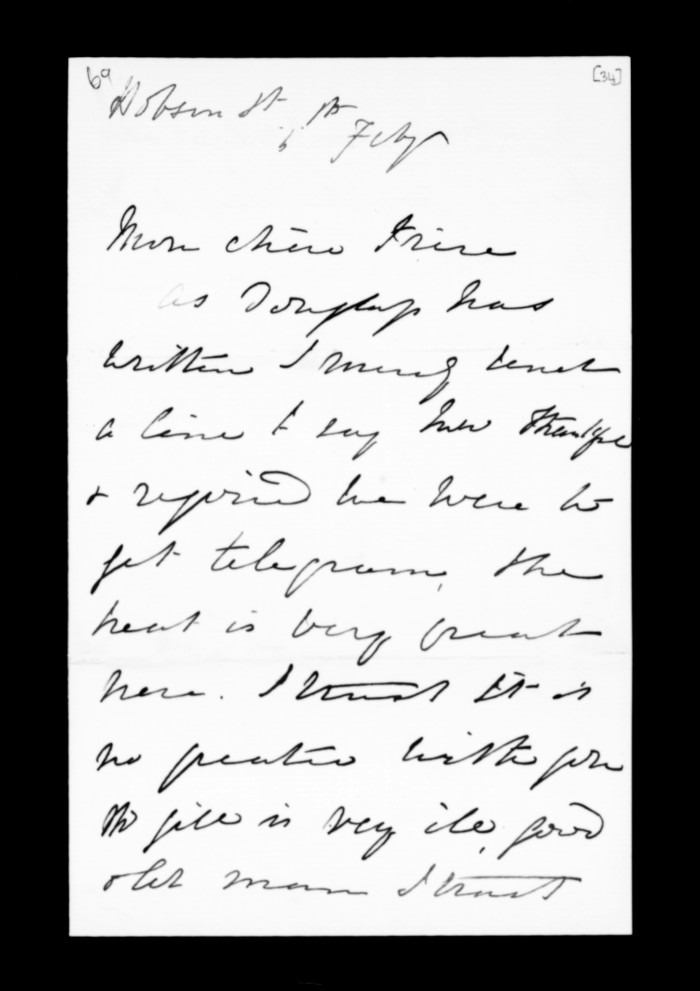 69 [34]
Hobson St
6th Feby
Mon chère Frère
as Douglas has
written I merely send
a line to say how thankful
& rejoiced we were to
get telegram, the
heat is very great
here. I trust it is
no greater with you
Mr Gill is very ill, good
old man I trust